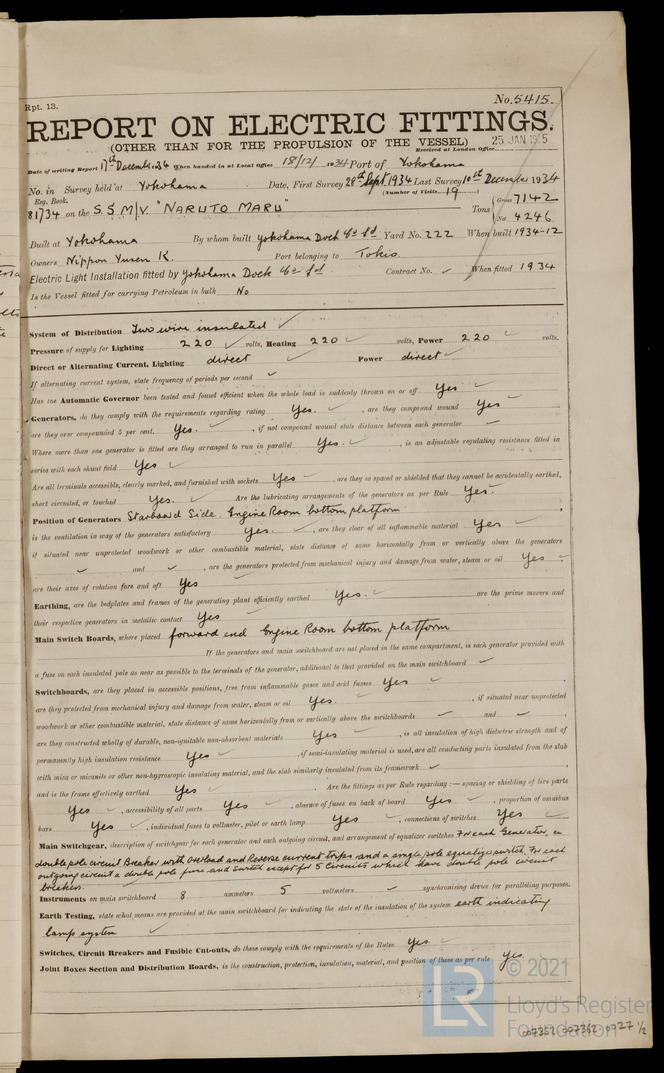 Rpt. 13.
No. 5415.
REPORT ON ELECTRIC FITTINGS.
(OTHER THAN FOR THE PROPULSION OF THE VESSEL)
25 JAN
Received at London Office
Date of writing Report 17th December 34 When handed in at Local Office 18/12/ 1934 Port of Yokohama
No. in Survey held at Yokohama Date, First Survey 28th Sept 1934 Last Survey 10th December 1934
Reg. Book. (Number of Visits 19)
81734 on the S.S M/V. "NARUTO MARU" Tons { Gross 7142
Net 4246
Built at Yokohama By whom built Yokohama Dock Co Ld Yard No. 222 When built 1934-12
Owners Nippon Yusen K. Port belonging to Tokio
Electric Light Installation fitted by Yokohama Dock Co Ld Contract No. ✓ When fitted 1934
Is the Vessel fitted for carrying Petroleum in bulk No
System of Distribution Two wire insulated ✓
Pressure of supply for Lighting 220 ✓ volts, Heating 220 ✓ volts, Power 220 ✓ volts.
Direct or Alternating Current, Lighting direct ✓ Power direct ✓
If alternating current system, state frequency of periods per second ✓
Has the Automatic Governor been tested and found efficient when the whole load is suddenly thrown on or off Yes ✓
Generators, do they comply with the requirements regarding rating Yes. ✓, are they compound wound Yes ✓
are they over compounded 5 per cent. Yes. ✓, if not compound wound state distance between each generator
Where more than one generator is fitted are they arranged to run in parallel Yes. ✓, is an adjustable regulating resistance fitted in
series with each shunt field Yes ✓
Are all terminals accessible, clearly marked, and furnished with sockets Yes ✓, are they so spaced or shielded that they cannot be accidentally earthed,
short circuited, or touched Yes. ✓ Are the lubricating arrangements of the generators as per Rule Yes.
Position of Generators Starboard Side. Engine Room bottom platform
is the ventilation in way of the generators satisfactory Yes. ✓, are they clear of all inflammable material Yes ✓
if situated near unprotected woodwork or other combustible material, state distance of same horizontally from or vertically above the generators
✓ and ✓, are the generators protected from mechanical injury and damage from water, steam or oil Yes ✓
are their axes of rotation fore and aft Yes
Earthing, are the bedplates and frames of the generating plant efficiently earthed Yes. ✓ are the prime movers and
their respective generators in metallic contact Yes
Main Switch Boards, where placed forward end Engine Room bottom platform
If the generators and main switchboard are not placed in the same compartment, is each generator provided with
a fuse on each insulated pole as near as possible to the terminals of the generator, additional to that provided on the main switchboard ✓
Switchboards, are they placed in accessible positions, free from inflammable gases and acid fumes Yes ✓
are they protected from mechanical injury and damage from water, steam or oil Yes. ✓, if situated near unprotected
woodwork or other combustible material, state distance of same horizontally from or vertically above the switchboards ✓ and ✓
are they constructed wholly of durable, non-ignitable non-absorbent materials Yes ✓, is all insulation of high dielectric strength and of
permanently high insulation resistance Yes ✓, if semi-insulating material is used, are all conducting parts insulated from the slab
with mica or micanite or other non-hygroscopic insulating material, and the slab similarly insulated from its framework ✓
and is the frame effectively earthed Yes ✓. Are the fittings as per Rule regarding:— spacing or shielding of live parts
Yes ✓, accessibility of all parts Yes ✓, absence of fuses on back of board Yes ✓, proportion of omnibus
bars Yes ✓, individual fuses to voltmeter, pilot or earth lamp Yes ✓, connections of switches Yes ✓
Main Switchgear, description of switchgear for each generator and each outgoing circuit, and arrangement of equalizer switches For each Generator, a
double pole circuit Breaker with overload and Reverse current trips and a single pole equalizer switch. For each
outgoing circuit a double pole fuse and switch except for 5 circuits which have double pole circuit
breakers.
Instruments on main switchboard 8 ammeters 5 voltmeters ✓ synchronising device for paralleling purposes.
Earth Testing, state what means are provided at the main switchboard for indicating the state of the insulation of the system earth indicating
lamp system ✓
Switches, Circuit Breakers and Fusible Cut-outs, do these comply with the requirements of the Rules Yes.
Joint Boxes Section and Distribution Boards, is the construction, protection, insulation, material, and position of these as per rule Yes
LR © 2021
Lloyd's Register
Foundation
007352-007362-0027 1/2